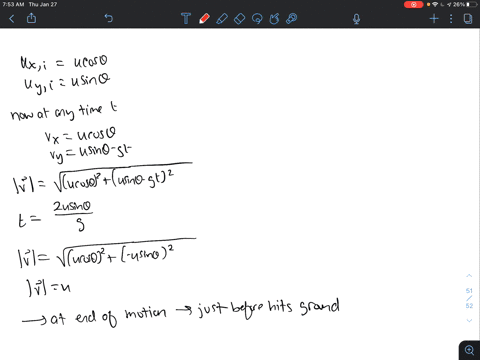 7:53 AM Thu Jan 27
26%
u_x,i = ucosθ
u_y,i = usinθ
now at any time t
v_x = ucosθ
v_y = usinθ-gt
|v⃗| = √((ucosθ)² + (usinθ-gt)²)
t = 2usinθ/g
|v⃗| = √((ucosθ)² + (-usinθ)²)
|v⃗| = u
→ at end of motion → just before hits ground
51
/
52